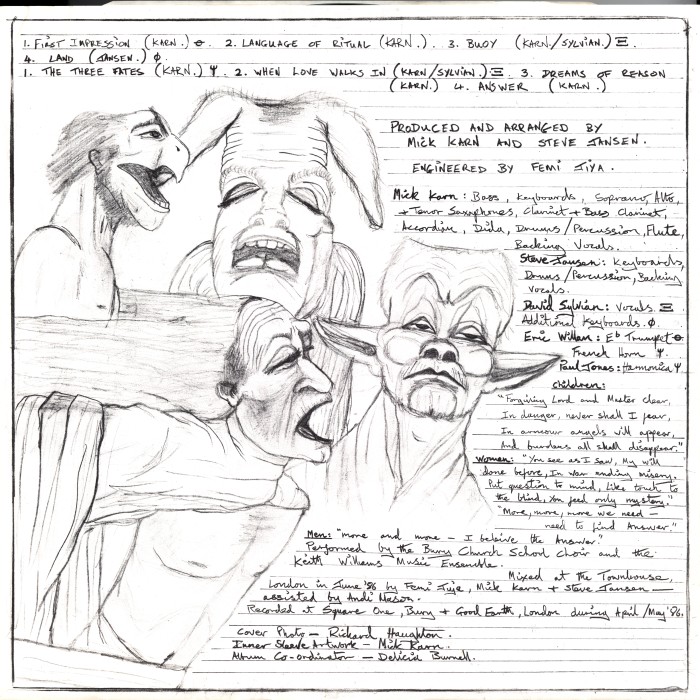 1. FIRST IMPRESSION (KARN.) ϴ. 2. LANGUAGE OF RITUAL (KARN.). 3. BUOY (KARN./SYLVIAN.) Ξ.
4. LAND (JANSEN.) ϕ.
1. THE THREE FATES (KARN.) Ψ. 2. WHEN LOVE WALKS IN (KARN/SYLVIAN.) Ξ. 3. DREAMS OF REASON
(KARN.) 4. ANSWER (KARN.)
PRODUCED AND ARRANGED BY
MICK KARN AND STEVE JANSEN.
ENGINEERED BY FEMI JIYA.
Mick Karn: Bass, Keyboards, Soprano, Alto,
+ Tenor Saxophones, Clarinet + Bass Clarinet,
Accordine, Dida, Drums/Percussion, Flute,
Backing Vocals.
Steve Jansen: Keyboards,
Drums/Percussion, Backing
Vocals.
David Sylvian: Vocals. Ξ
Additional Keyboards. ϕ.
Eric Willen: Eb Trumpet ϴ
French Horn Ψ.
Paul Jones: Harmonica Ψ
Children:
"Forgiving Lord and Master clear,
In danger, never shall I fear,
In armour angels will appear,
And burdens all shall disappear."
Women: "You see as I saw, My will
done before, In war ending misery.
Put question to mind, Like touch to
the blind, You feed only mystery."
"More, more, more we need —
need to find Answer."
Men: "more and more — I believe the Answer."
Performed by the Bury Church School Choir and the
Keith Williams Music Ensemble.
Mixed at the Townhouse,
London in June '86 by Femi Jiya, Mick Karn + Steve Jansen —
assisted by Andi Mason.
Recorded at Square One, Bury + Good Earth, London during April/May '86.
Cover Photo — Richard Haughton.
Inner Sleeve Artwork — Mick Karn.
Album Co-ordinator — Delicia Burnell.